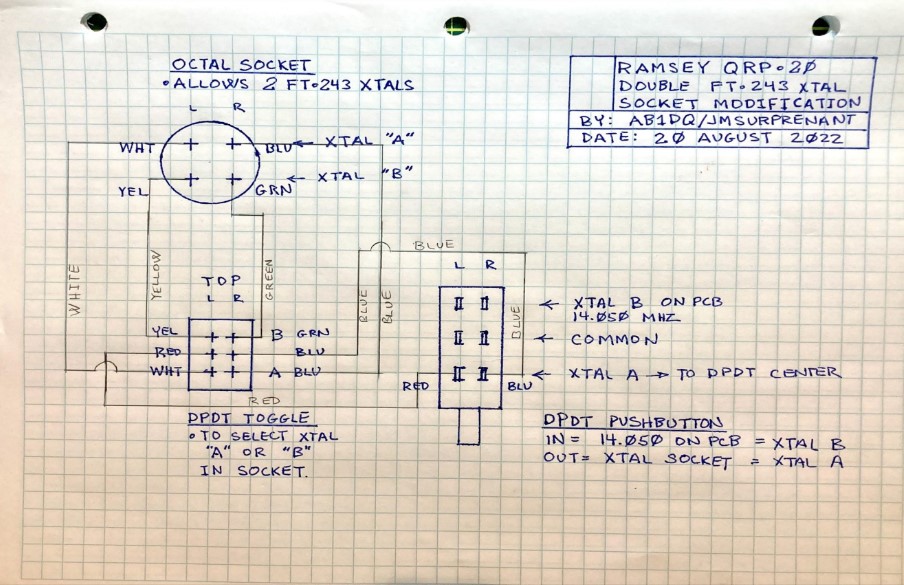 OCTAL SOCKET
• ALLOWS 2 FT•243 XTALS
L R
WHT
BLU ← XTAL "A"
← XTAL "B"
YEL
GRN
RAMSEY QRP•2Ø
DOUBLE FT•243 XTAL
SOCKET MODIFICATION
BY: AB1DQ/JMSURPRENANT
DATE: 2Ø AUGUST 2Ø22
BLUE
WHITE
YELLOW
GREEN
BLUE
BLUE
BLUE
TOP
L R
YEL
B GRN
RED
BLU
WHT
A BLU
RED
DPDT TOGGLE
• TO SELECT XTAL
"A" OR "B"
IN SOCKET.
L R
← XTAL B ON PCB
14.Ø5Ø MHZ
← COMMON
← XTAL A → TO DPDT CENTER
RED
BLU
DPDT PUSHBUTTON
IN = 14.Ø5Ø ON PCB = XTAL B
OUT= XTAL SOCKET = XTAL A